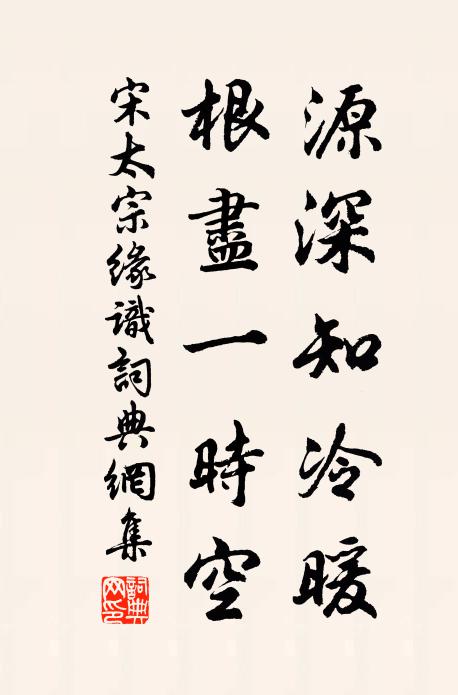 源深知冷暖
根盡一時空
宋太宗緣識詞典網集
詞典
网印